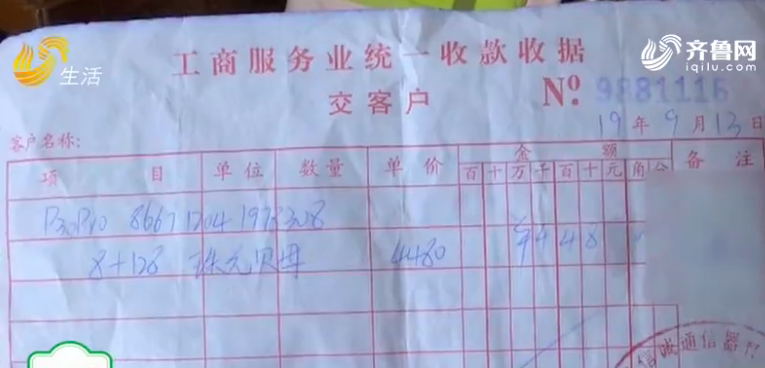 生活
齐鲁网
iqilu.com
工商服务业统一收款收据
交客户
Nº 9881116
19年9月13日
客户名称:
项目 单位 数量 单价 金额 备注
百 十 万 千 百 十 元 角 分
P30Pro 8667
8+128 珠光贝母 4480 ¥ 4 4 8
诚通信器